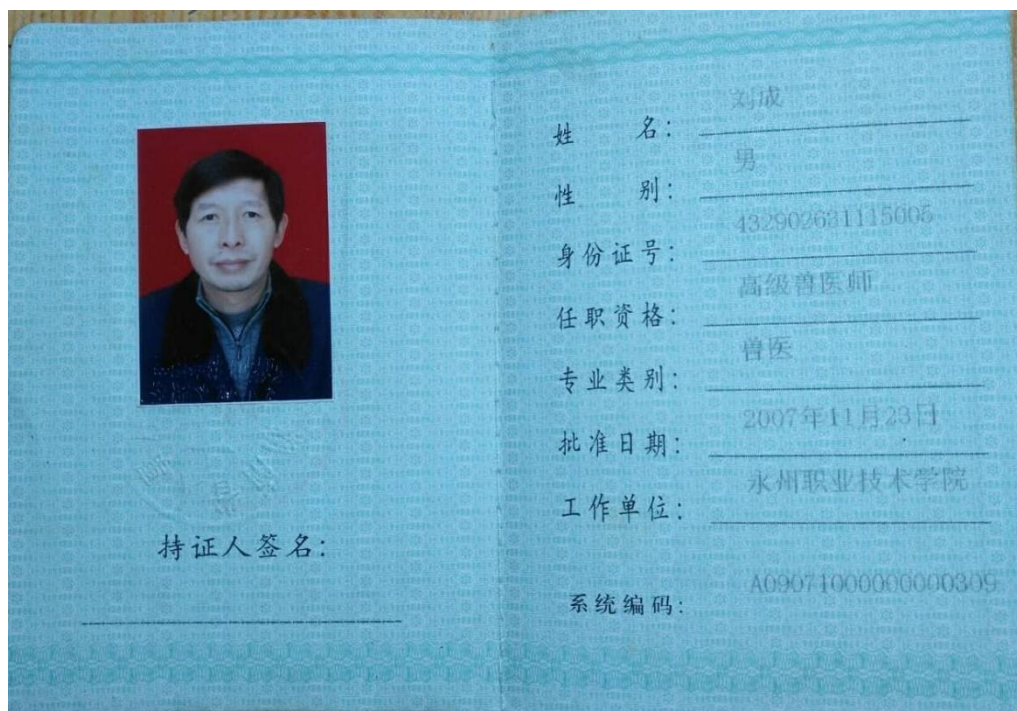 持证人签名:
姓 名: 刘成
性 别: 男
身份证号: 432902631115005
任职资格: 高级兽医师
专业类别: 兽医
批准日期: 2007年11月23日
工作单位: 永州职业技术学院
系统编码: A09071000000000309